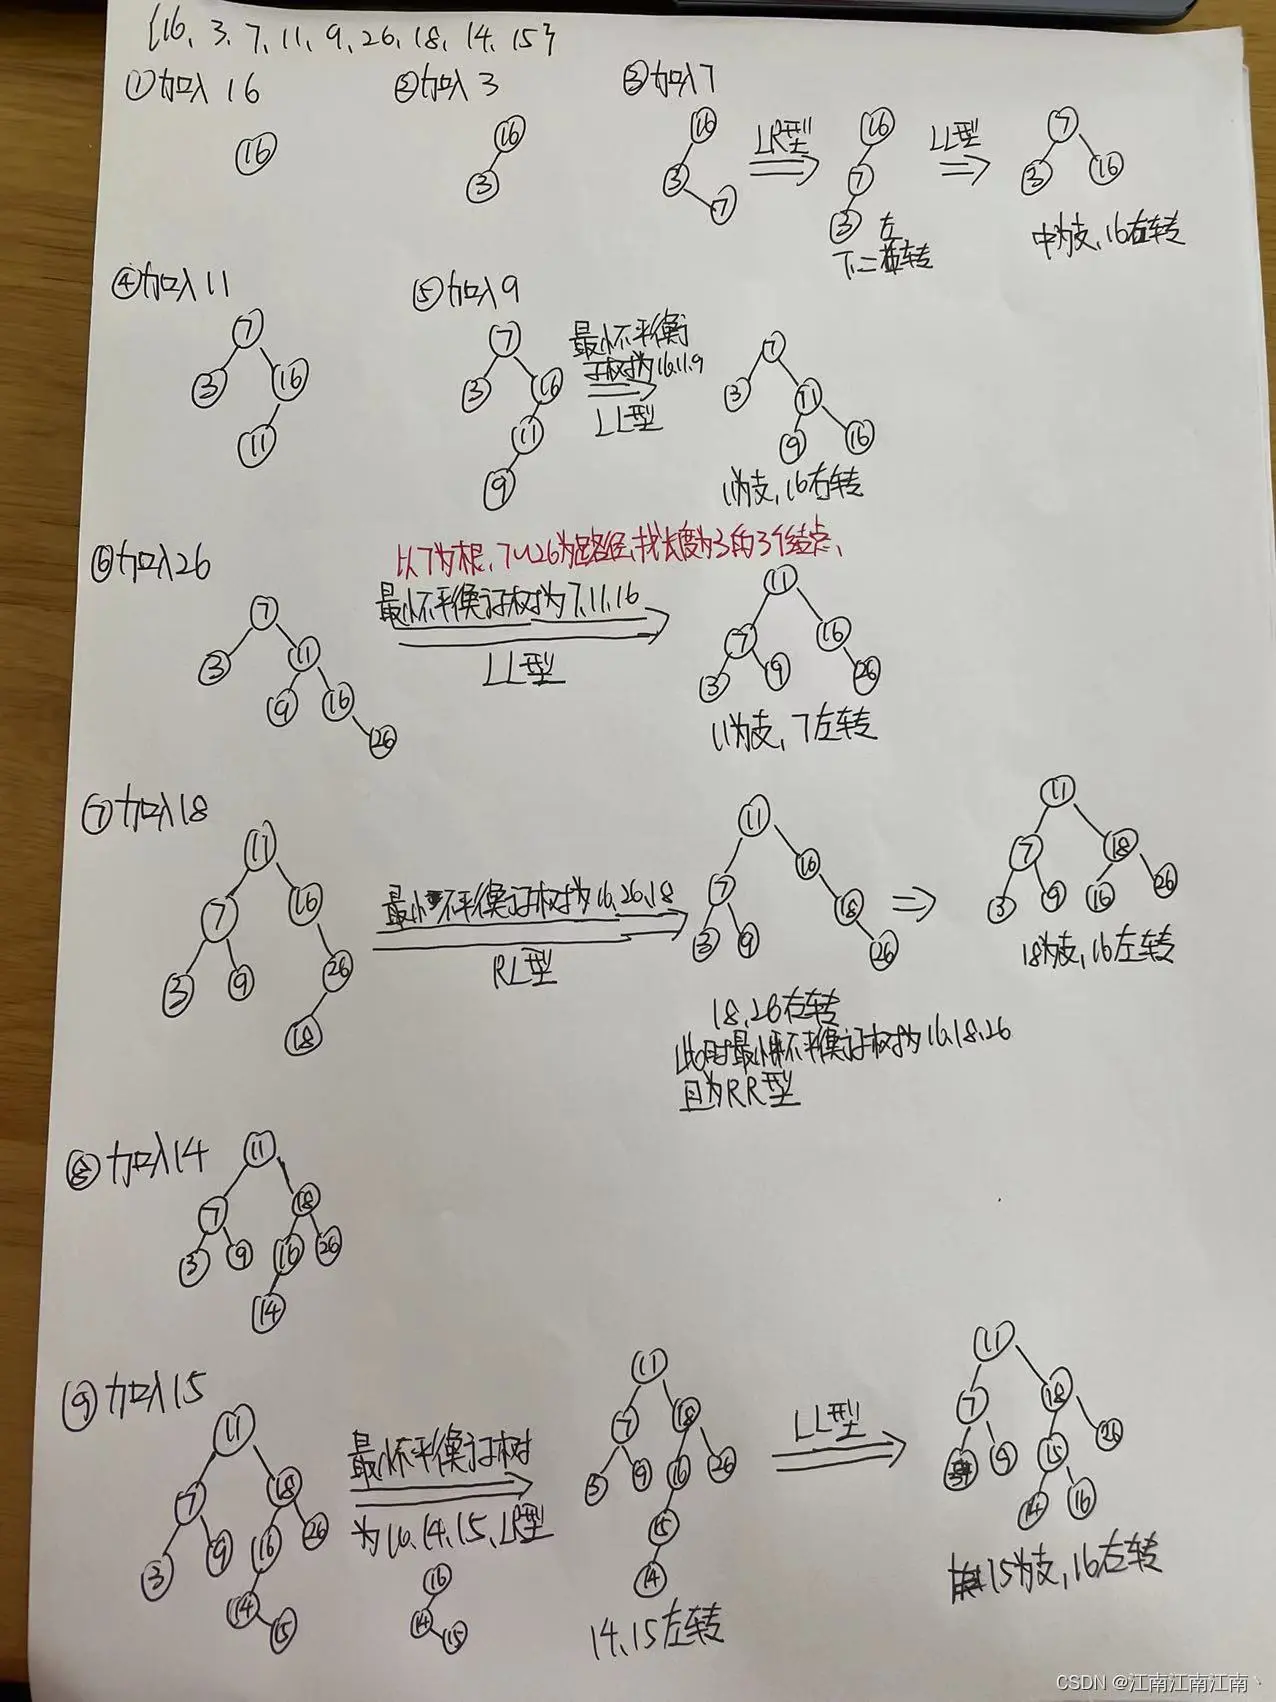 {16、3、7、11、9、26、18、14、15}
①加入16
②加入3
③加入7
16
16
3
16
3
7
LR型
16
7
3
左
下二 转
LL型
7
3
16
中为支,16右转
④加入11
7
3
16
11
⑤加入9
7
3
16
11
9
最小不平衡
子树为16,11,9
LL型
7
3
11
9
16
11为支,16右转
⑥加入26
以7为根,7~26为路径,找长度为3的3个结点、
7
3
11
9
16
26
最小不平衡子树为7,11,16
LL型
11
7
16
3
9
26
11为支,7左转
⑦加入18
11
7
16
3
9
26
18
最小不平衡子树为16,26,18
RL型
11
7
16
3
9
18
26
11
7
18
3
9
16
26
18为支,16左转
18、26右转
此时最小不平衡子树为16,18,26
且为RR型
⑧加入14
11
7
18
3
9
16
26
14
⑨加入15
11
7
18
3
9
16
26
14
15
最小不平衡子树
为16、14、15、LR型
16
14
15
11
7
18
3
9
16
26
15
14
14、15左转
LL型
11
7
18
9
15
26
14
16
15为支,16右转
CSDN @江南江南江南